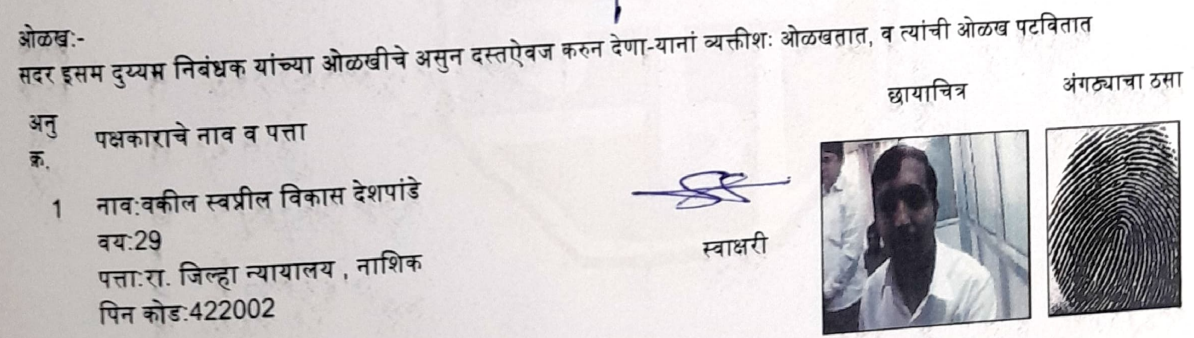 ओळख:-
सदर इसम दुय्यम निबंधक यांच्या ओळखीचे असुन दस्तऐवज करुन देणा-यानां व्यक्तीशः ओळखतात, व त्यांची ओळख पटवितात
अनु क्र. पक्षकाराचे नाव व पत्ता
छायाचित्र
अंगठ्याचा ठसा
1 नाव:वकील स्वप्नील विकास देशपांडे
वय:29
पत्ता:रा. जिल्हा न्यायालय , नाशिक
पिन कोड:422002
स्वाक्षरी